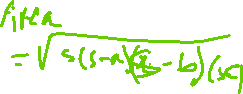 Area
= √s(s-a)(s-b)(sc)